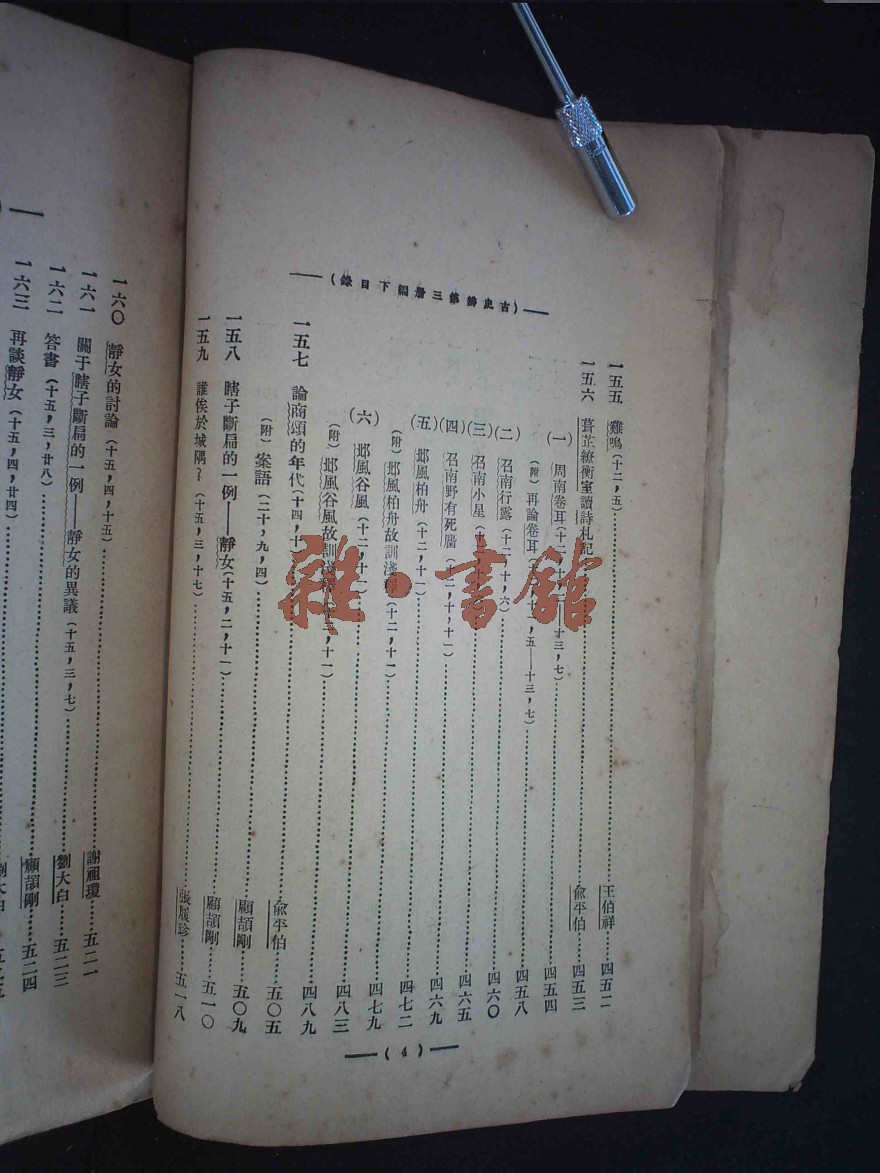 （古史辨第三册下編目錄）
一五五　雞鳴（十二，五）……王伯祥……四五二
一五六　葺芷繚衡室讀詩札記……俞平伯……四五三
（一）周南卷耳（十二，十　十三，七）……四五四
（附）再論卷耳（　五—十三，七）……四五八
（二）召南行露（十二，十，六）……四六〇
（三）召南小星（十……四六五
（四）召南野有死麕（十二，十，十一）……四六九
（五）邶風柏舟（十二，十一）……四七二
（附）邶風柏舟故訓淺　（十二，十一）……四七九
（六）邶風谷風（十二，十一）……四八三
（附）邶風谷風故訓淺　十一）……四八九
一五七　論商頌的年代（十四，十……俞平伯……五〇五
（附）案語（二十，九，四）……顧頡剛……五〇九
一五八　瞎子斷扁的一例——靜女（十五，二，十一）……顧頡剛……五一〇
一五九　誰俟於城隅？（十五，三，十七）……張履珍……五一八
（4）
一六〇　靜女的討論（十五，四，十五）……謝祖瓊……五二一
一六一　關于瞎子斷扁的一例——靜女的異議（十五，三，七）……劉大白……五二三
一六二　答書（十五，三，廿八）……顧頡剛……五二四
一六三　再談靜女（十五，四，廿四）……劉大白
雜·書館